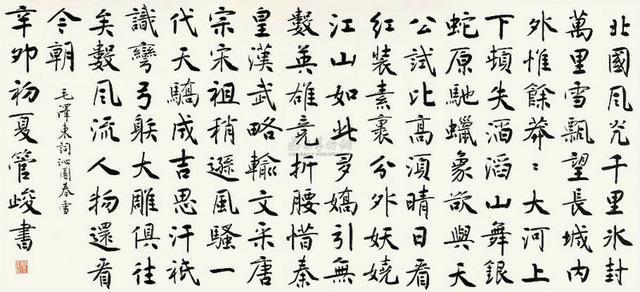 北國风光千里冰封
萬里雪飄望長城内
外惟餘莽〻大河上
下頓失滔滔山舞銀
蛇原馳蠟象欲與天
公試比高須晴日看
紅裝素裹分外妖嬈
江山如此多嬌引無
數英雄竞折腰惜秦
皇漢武略輸文采唐
宗宋祖稍遜風騷一
代天驕成吉思汗祇
識彎弓射大雕俱往
矣數风流人物還看
今朝
毛澤東詞沁園春雪
辛卯初夏管峻書